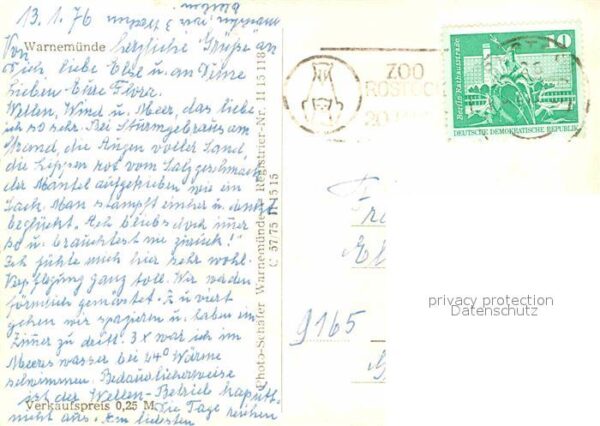 13. 1. 76
Warnemünde
Von herzliche Grüße an
Dich liebe Else u. an Deine
Lieben - Eure Flora.
Wellen, Wind u. Meer, das liebe
ich so sehr. Bei Sturmgebraus am
Strand, die Augen voller Sand,
die Lippen rot vom Salzgeschmack
der Mantel aufgetrieben wie ein
Sack. Man stampft einher u. denkt
beglückt. "Ach bliebs doch immer
so u. brauchtest nie zurück!"
Ich fühle mich hier sehr wohl.
Verpflegung ganz toll. Wir werden
förmlich gemästet. Zu viert
gehen wir spazieren u. haben ein
Zimmer zu dritt. 3 x war ich im
Meereswasser bei 24° Wärme
schwimmen. Bedauerlicherweise
ist der Wellen-Betrieb kaputt
Verkaufspreis 0,25 M
Die Tage reichen
nicht aus. Am liebsten
Photo-Schäfer Warnemünde Registrier-Nr. 11 15 118
C 57/75 IV 15 15
ZOO
ROSTOCK
20
10
Berlin, Rathausstraße
DEUTSCHE DEMOKRATISCHE REPUBLIK
9165
privacy protection
Datenschutz